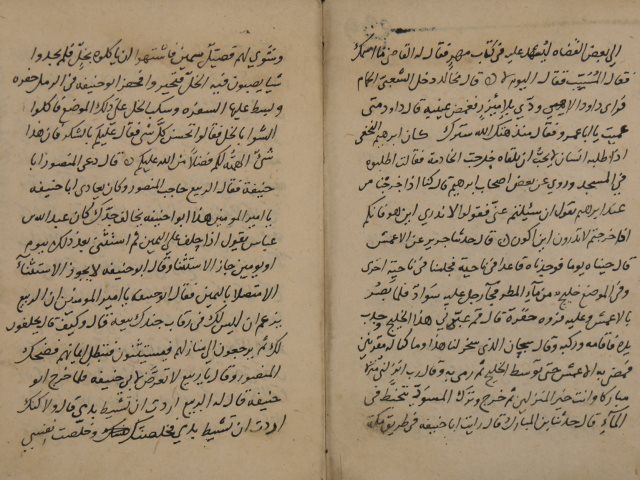 الى بعض القضاه ليشهد عليه في كتاب مهر فقال له القاضي ما اسمك
قال المسيب فقال اليوم لا قال مجالد دخل الشعبي الحمام
فراى داود الاودي بلا ميزر فغمض عينيه فقال داود متى
عميت يابا عمرو فقال منذ هتك الله سترك كان ابرهيم النخعي
اذا طلبه انسان لا يحب ان يلقاه خرجت الخادمه فقالت اطلبوه
في المسجد وروي عن بعض اصحاب ابرهيم قال كنا اذا خرجنا من
عند ابرهيم يقول ان سيلتم عني فقولوا لا ندري اين هو فانكم
اذا خرجتم لا تدرون اين اكون قال حدثنا جرير عن الاعمش
قال جيناه يوما فوجدناه قاعدا في ناحية فجلسنا في ناحية اخرى
وفي الموضع خليج من ماء المطر فجا رجل عليه سواد فلما بصر
بالاعمش وعليه فروه حقره قال قم عبرني هذا الخليج وجذب
يده فاقامه وركبه وقال سبحان الذي سخر لنا هذا وما كنا له مقرنين
فمضى به الاعمش حتى توسط الخليج ثم رمى به وقال رب انزلني منزلا
مباركا وانت خير المنزلين ثم خرج وترك المسود يتخبط في
المآء قال حدثنا بن المبارك قال رايت ابا حنيفه في طريق مكة
وشوي لهم فصيل سمين فاشتهوا ان ياكلوه بخل فلم يجدوا
شيا يصبون فيه الخل فتحيروا فحفر ابو حنيفه في الرمل حفره
وبسط عليها السفره وسكب الخل على ذلك الموضع فاكلوا
الشوا بالخل فقالوا تحسن كل شي فقال عليكم بالشكر فان هذا
شئ الهمته لكم فضلا من الله عليكم قال دعى المنصور ابا
حنيفة فقال الربيع حاجب المنصور وكان يعادي ابا حنيفة
يا امير المومنين هذا ابو حنيفه يخالف جدك كان عبد الله بن
عباس يقول اذا حلف على اليمين ثم استثنى بعد ذلك بيوم
او يومين جاز الاستثنا وقال ابو حنيفه لا يجوز الاستثنآء
الا متصلا باليمين فقال ابو حنيفه يا امير المومنين ان الربيع
يزعم ان ليس لك في رقاب جندك بيعه قال وكيف قال يحلفون
لك ثم يرجعون الى منازلهم فيستثنون فتبطل ايمانهم فضحك
المنصور وقال يا ربيع لا تعرض لابي حنيفه فلما خرج ابو
حنيفه قال له الربيع اردت ان تشيط بدمي قال لا ولكنك
اردت ان تشيط بدمي فخلصتك وخلصت نفسي